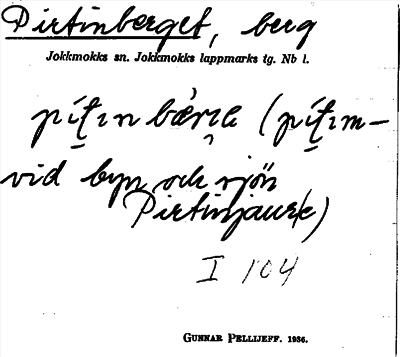 Pirtinberget, berg
Jokkmokks sn. Jokkmokks lappmarks tg. Nb l.
pít̯ɪn bær̀ɪɛ (pít̯ɪm–
vid byn och sjön
Pirtinjaure)
I 104
GUNNAR PELLIJEFF. 1936.